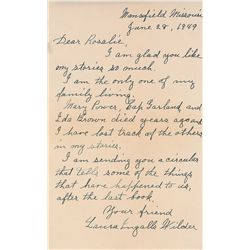 Mansfield Missouri
June 28, 1949
Dear Rosalie,
I am glad you like
my stories so much.
I am the only one of my
family living.
Mary Power, Cap Garland, and
Ida Brown died years ago and
I have lost track of the others
in my stories.
I am sending you a circular
that tells some of the things
that have happened to us,
after the last book.
Your friend
Laura Ingalls Wilder